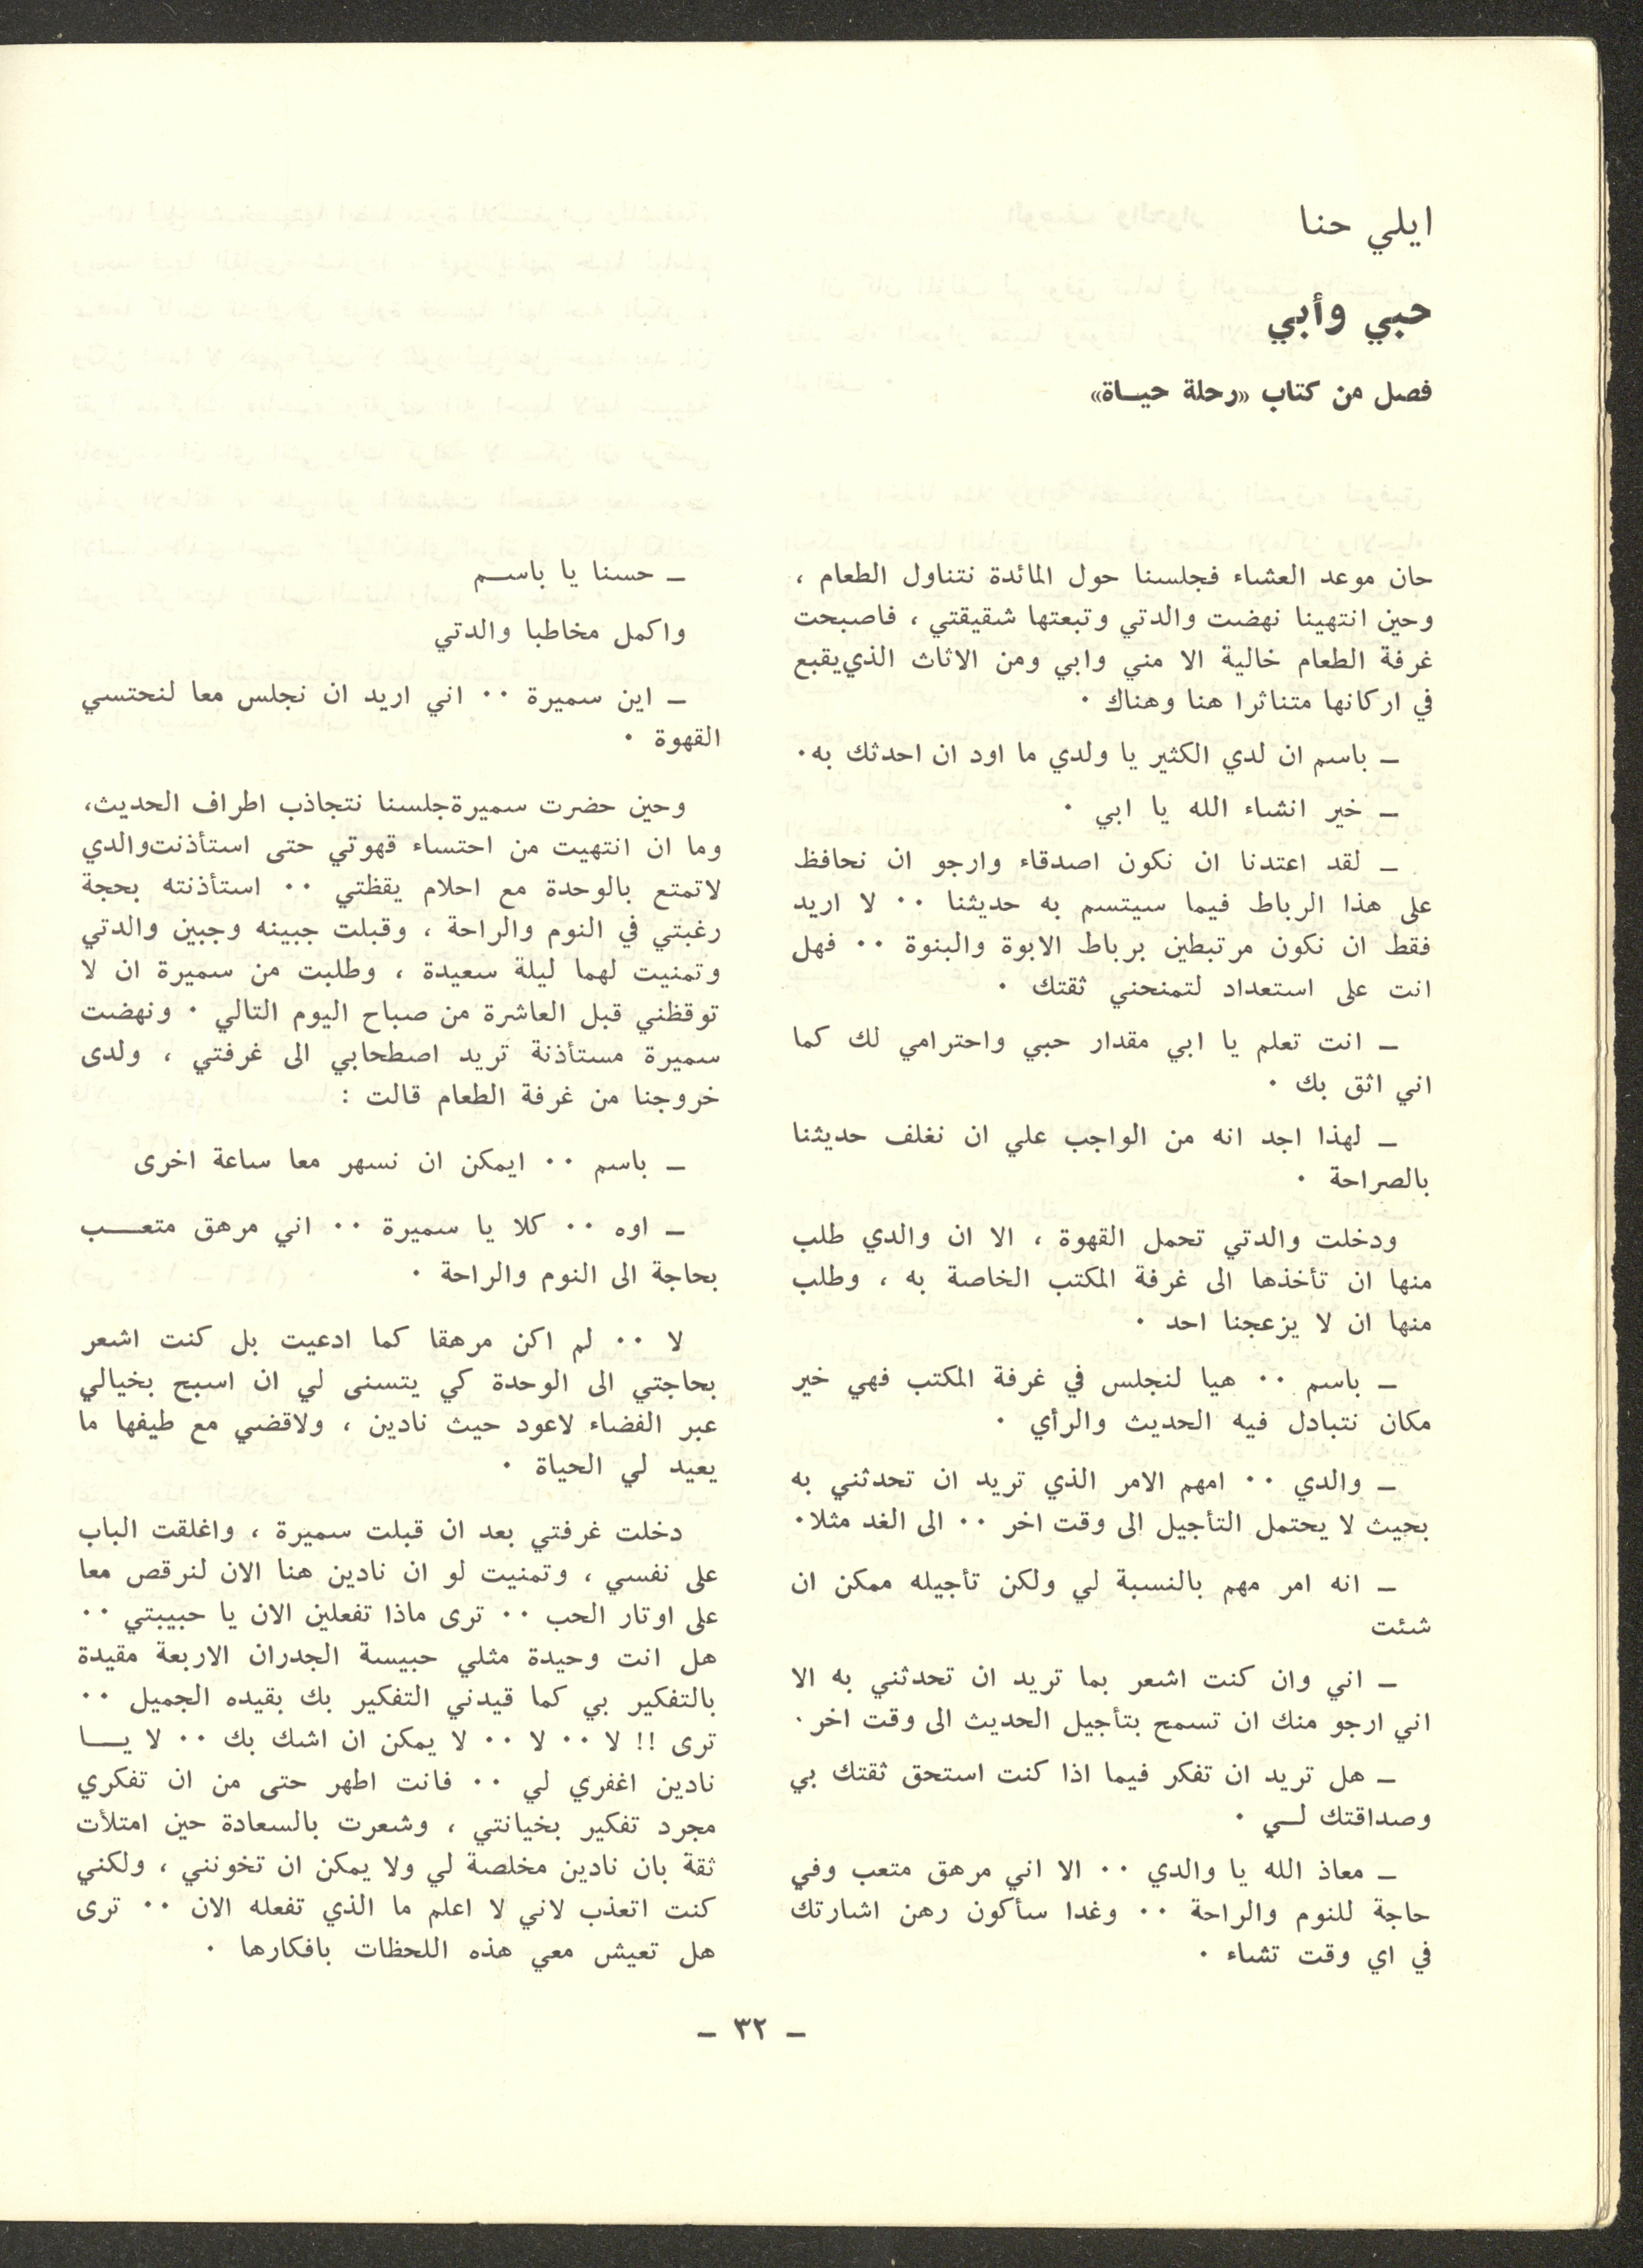 ايلي حنا
حبي وأبي
فصل من كتاب «رحلة حيــاة»
حان موعد العشاء فجلسنا حول المائدة نتناول الطعام ،
وحين انتهينا نهضت والدتي وتبعتها شقيقتي ، فاصبحت
غرفة الطعام خالية الا مني وابي ومن الاثاث الذي يقبع
في اركانها متناثرا هنا وهناك ٠
ـ باسم ان لدي الكثير يا ولدي ما اود ان احدثك به ٠
ـ خير انشاء الله يا ابي ٠
ـ لقد اعتدنا ان نكون اصدقاء وارجو ان نحافظ
على هذا الرباط فيما سيتسم به حديثنا ٠٠ لا اريد
فقط ان نكون مرتبطين برباط الابوة والبنوة ٠٠ فهل
انت على استعداد لتمنحني ثقتك ٠
ـ انت تعلم يا ابي مقدار حبي واحترامي لك كما
اني اثق بك ٠
ـ لهذا اجد انه من الواجب علي ان نغلف حديثنا
بالصراحة ٠
ودخلت والدتي تحمل القهوة ، الا ان والدي طلب
منها ان تأخذها الى غرفة المكتب الخاصة به ، وطلب
منها ان لا يزعجنا احد ٠
ـ باسم ٠٠ هيا لنجلس في غرفة المكتب فهي خير
مكان نتبادل فيه الحديث والرأي ٠
ـ والدي ٠٠ امهم الامر الذي تريد ان تحدثني به
بحيث لا يحتمل التأجيل الى وقت اخر ٠٠ الى الغد مثلا ٠
ـ انه امر مهم بالنسبة لي ولكن تأجيله ممكن ان
شئت
ـ اني وان كنت اشعر بما تريد ان تحدثني به الا
اني ارجو منك ان تسمح بتأجيل الحديث الى وقت اخر ٠
ـ هل تريد ان تفكر فيما اذا كنت استحق ثقتك بي
وصداقتك لــي ٠
ـ معاذ الله يا والدي ٠٠ الا اني مرهق متعب وفي
حاجة للنوم والراحة ٠٠ وغدا سأكون رهن اشارتك
في اي وقت تشاء ٠
ـ حسنا يا باســم
واكمل مخاطبا والدتي
ـ اين سميرة ٠٠ اني اريد ان نجلس معا لنحتسي
القهوة ٠
وحين حضرت سميرة جلسنا نتجاذب اطراف الحديث،
وما ان انتهيت من احتساء قهوتي حتى استأذنت والدي
لاتمتع بالوحدة مع احلام يقظتي ٠٠ استأذنته بحجة
رغبتي في النوم والراحة ، وقبلت جبينه وجبين والدتي
وتمنيت لهما ليلة سعيدة ، وطلبت من سميرة ان لا
توقظني قبل العاشرة من صباح اليوم التالي ٠ ونهضت
سميرة مستأذنة تريد اصطحابي الى غرفتي ، ولدى
خروجنا من غرفة الطعام قالت :
ـ باسم ٠٠ ايمكن ان نسهر معا ساعة اخرى
ـ اوه ٠٠ كلا يا سميرة ٠٠ اني مرهق متعـــب
بحاجة الى النوم والراحة ٠
لا ٠٠ لم اكن مرهقا كما ادعيت بل كنت اشعر
بحاجتي الى الوحدة كي يتسنى لي ان اسبح بخيالي
عبر الفضاء لاعود حيث نادين ، ولاقضي مع طيفها ما
يعيد لي الحياة ٠
دخلت غرفتي بعد ان قبلت سميرة ، واغلقت الباب
على نفسي ، وتمنيت لو ان نادين هنا الان لنرقص معا
على اوتار الحب ٠٠ ترى ماذا تفعلين الان يا حبيبتي ٠٠
هل انت وحيدة مثلي حبيسة الجدران الاربعة مقيدة
بالتفكير بي كما قيدني التفكير بك بقيده الجميل ٠٠
ترى !! لا ٠٠ لا ٠٠ لا يمكن ان اشك بك ٠٠ لا يـــا
نادين اغفري لي ٠٠ فانت اطهر حتى من ان تفكري
مجرد تفكير بخيانتي ، وشعرت بالسعادة حين امتلأت
ثقة بان نادين مخلصة لي ولا يمكن ان تخونني ، ولكني
كنت اتعذب لاني لا اعلم ما الذي تفعله الان ٠٠ ترى
هل تعيش معي هذه اللحظات بافكارها ٠
ـ ٣٢ ـ